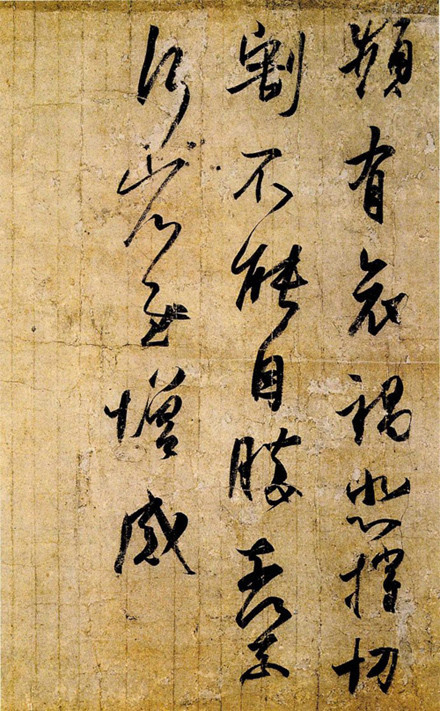 频有哀祸悲摧切
割不能自胜奈何奈
何省慰增感